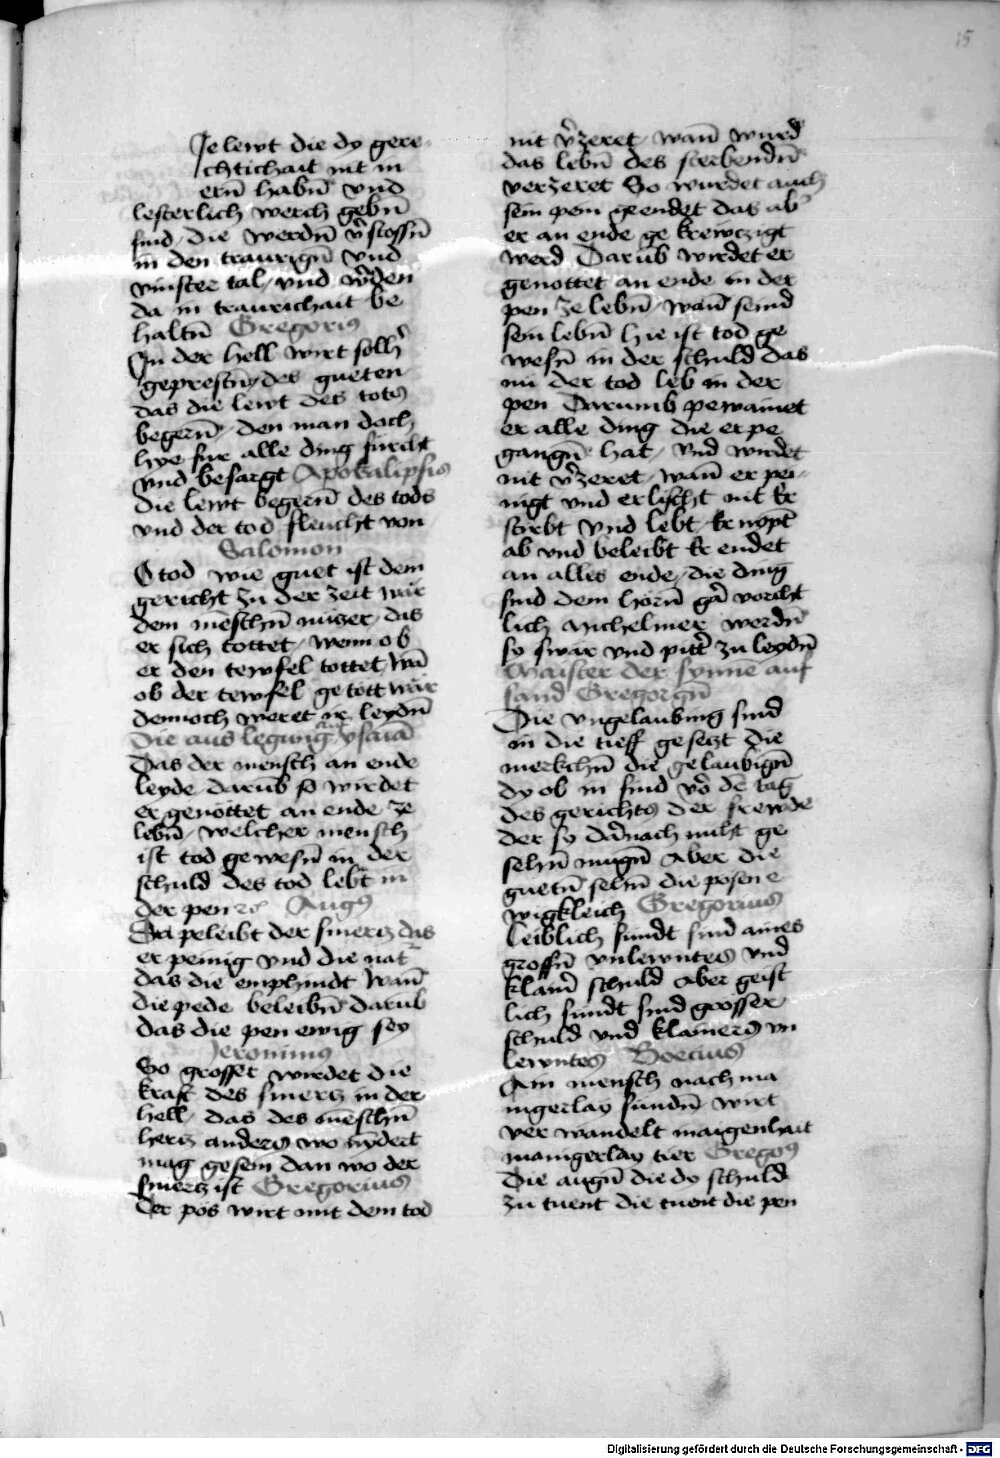 15
Je lewt die dy gere-
chtichait nit in
ern̄ habn̄ vnd
lesterlich werch gebn̄
sind / die werdn̄ v̄stossn̄
in den traurign̄ vnd
vinster tal / vnd w̄den
da in traurichait be
haltn̄ Gregoriꝰ
In der hell wirt sollh̄
geprestn̄ / des gueten
das die lewt des totꝭ
begern̄ / den man doch
hye fur alle ding furcht
vnd besargt Apokalipsis
die lewt begern̄ des tods
vnd der tod fleucht von
Salomon
O tod wie guet ist dein
gericht zu der zeit wär
dem mēschn̄ nuczer / das
er sich tottet / wenn ob
er den tewfel tottet / wā
ob der tewfel getött wär
dennoch weret ir leydn̄
Die auslegung vber ysaiā
Das der mensch an ende
leyde darūb so wirdet
er genöttet an ende ze
lebn̄ / welcher mensch
ist tod gewesn̄ in der
schuld des tod lebt in
der pen ꝛc̄ Augꝰ
Da peleibt der smercz das
er peinig vnd die nat̄
das die emphindt wan̄
die pede beleibn̄ darūb
das die pen ewig sey
Jeronimus
So grosser wirdet die
kraft des smercz in der
hell / das des mēschn̄
hercz anderꝭ wo nȳdert
mag gesein dan wo der
smercz ist Gregorius
Der pös wirt mit dem tod
nit v̄zeret / wan̄ wurd
das lebn̄ des sterbendn̄
verzeret So wurdet auch
sein pein geendet das ab̄
er an ende gekrewczigt
werd Darūb wirdet er
genottet an ende in der
pen ze lebn̄ / wan̄ seind
sein lebn̄ hie ist tod ge
wesn̄ in der schuld das
nu der tod leb in der
pen Darumb pewainet
er alle ding die er pe
gangn̄ hat / vnd wirdet
nit v̄zeret / wan̄ er pei-
nigt vnd erlischt nit Er
stirbt vnd lebt Er nӧpt̄
ab vnd beleibt Er endet
an alles ende / die ding
sind dem hörn̄ gar vorcht
lich michelmer werdn̄
sy swär vnd pitt̄ zu leydn̄
Maister der synne auf
sand Gregorgn̄
Die vngelaubing sind
in die tieff gesetzt die
merkchn̄ die gelaubign̄
dy ob in sind vō dē tag
des gerichtꝭ der frewde
der sy darnach nicht ge
sehn̄ mugn̄ Aber die
guetn̄ sehn̄ die posen e
wigkleich Gregorius
Leiblich sundt sind aines
grossn̄ vnlewntes vnd
klain̄ schuld Aber geist
lich sundt sind grosser
schuld vnd klainers vn
lewntes Boecius
Ain mensch nach ma
nigerlay sundn̄ wirt
verwandelt maigenhait
manigerlay tier Gregoꝰ
Die augn̄ die dy schuld
zu tuent die tuent die pen
Digitalisierung gefördert durch die Deutsche Forschungsgemeinschaft - DFG